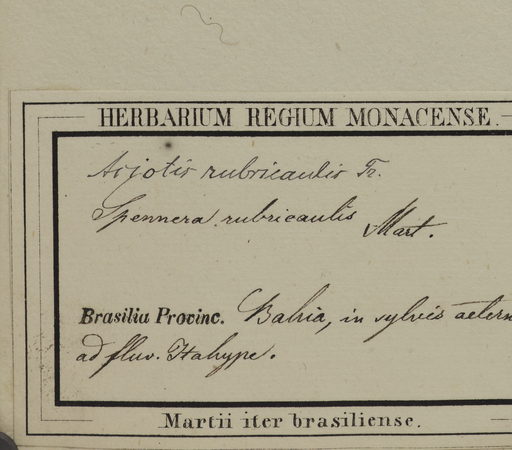 HERBARIUM REGIUM MONACENSE.
Acjotis rubricaulis Tr.
Spennera rubricaulis Mart.
Brasilia Provinc. Bahia, in sylvis aetern
ad fluv. Itahype.
Martii iter brasiliense.